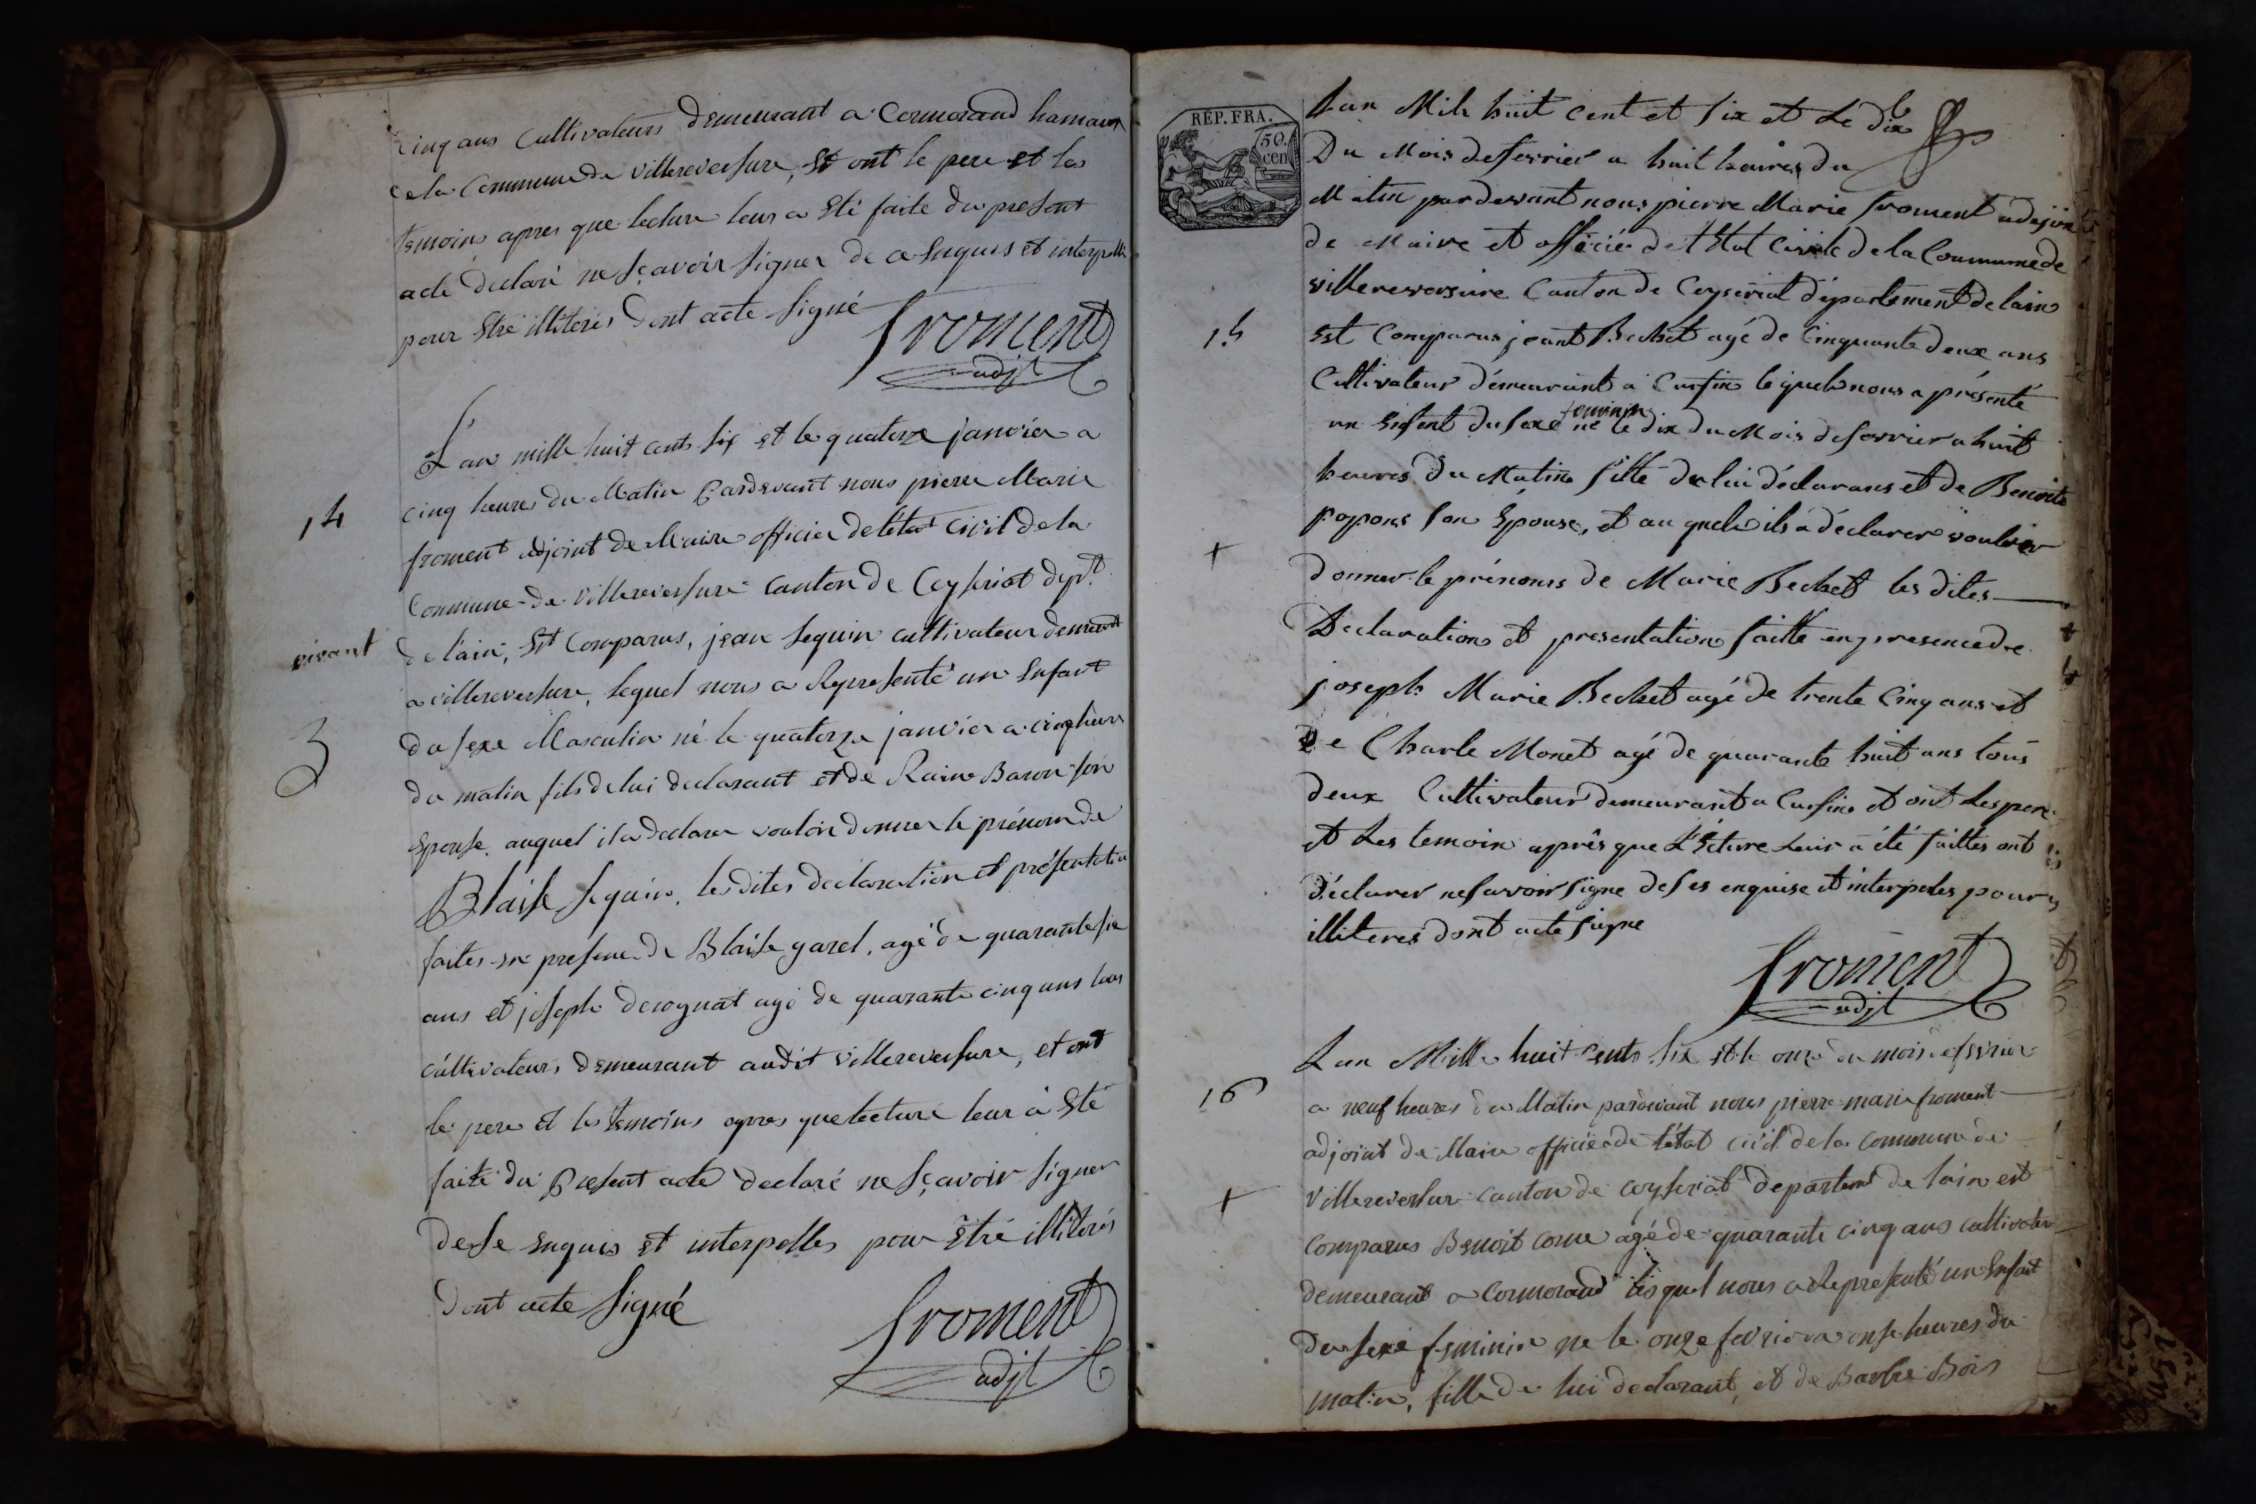 cinq ans cultivateurs demeurant a Cormorand hamaux
de la Commune de villereversure, et ont le pere et les
temoins apres que lecture leur a eté faite du present
acte declaré ne sçavoir signer de ce enquis et interpellé
pour etre illiterés dont acte signé
froment
adjt
14
L'an mille huit cents six et le quatorze janvier a
cinq heures du Matin Pardevant nous pierre Marie
froment adjoint de Maire officier de l'état civil de la
Commune de villereversure canton de Ceyseriat dept.
vivant
de l'ain, est Comparus, jean seguin cultivateur demeurant
a villereversure, lequel nous a Representé un Enfant
du sexe Masculin né le quatorze janvier a cinq heures
3
du matin fils de lui declarant et de Raine Baron son
Epouse. auquel il a declarer vouloir donner le prénom de
Blaise seguin, les dites declaration et présentation
faites en présence de Blaise garel, agé de quarante six
ans et joseph derognat agé de quarante cinq ans tous
cultivateurs demeurant audit villereversure, et ont
le pere et les temoins apres que lecture leur à eté
faite du Present acte declaré ne sçavoir signer
de se enquis et interpelles pour être illiterés
dont acte signé
froment
adjt
REP. FRA.
50.
cen
Lan Mile huit Cent et six et Le dix
Du Mois de fevrier a huit heures du
Matin par devant nous pierre Marie froment adejoin
de Maire et officié de l'Etat Civile de la Coumune de
villereversure Canton de Ceyseriat département de lain
15
Est Comparus jeant Bechet agé de Cinquante deux ans
Cultivateur démeurant à Cusfin le quel nous a présenté
feminin
un Enfent du sexe né le dix du Mois de fevrier a huit
heures Du Matin fille de lui déclarans et de Benoite
popons son Épouse, et au quele ils a déclarer voulvoir
+
Donner le prénoms de Marie Bechet les dites
Declaration et presentation faitte en presence de
joseph Marie Bechet agé de trente Cinq ans et
De Charle Monet agé de quarante huit ans tous
deux Cultivateur demeurant a Cusfin et ont Les pere
et Les temoin après que L'écture Leur a été faittes ont
déclarer ne savoir signe de ses enquise et interpeles pour
illiteres dont acte signe
froment
adjt
16
Lan Mille huit Cents six et le onze du mois de fevrier
a neuf heures du Matin pardevant nous pierre marie froment
adjoint de Maire officier de l'état civil de la commune de
+
Villereversur canton de ceyseriat departemt de l'ain est
Comparus Benoit Corne agé de quarante cinq ans cultivateur
demeurant a Cormorand lesquel nous a Representé un Enfant
du sexe feminin ne le onze fevrier a onse heures du
matin, fille de lui declarant, et de Barbe Bois